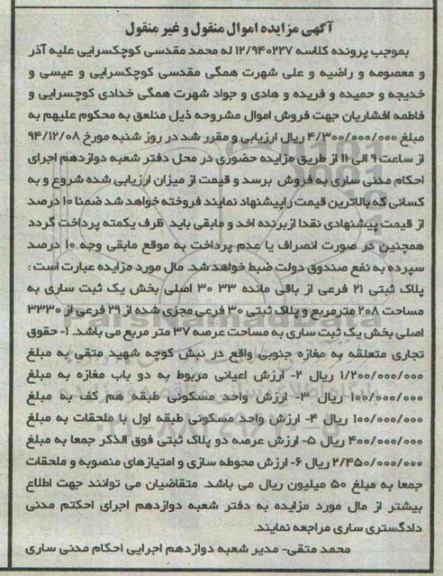 آگهی مزایده اموال منقول و غیر منقول
بموجب پرونده کلاسه ۱۲/۹۴۰۲۲۷ له محمد مقدسی کوچکسرایی علیه آذر
و معصومه و راضیه و علی شهرت همگی مقدسی کوچکسرایی و عیسی و
خدیجه و حمیده و فریده و هادی و جواد شهرت همگی خدادی کوچسرایی و
فاطمه افشاریان جهت فروش اموال مشروحه ذیل متلعق به محکوم علیهم به
مبلغ ۴/۳۰۰/۰۰۰/۰۰۰ ریال ارزیابی و مقرر شد در روز شنبه مورخ ۹۴/۱۲/۰۸
از ساعت ۹ الی ۱۱ از طریق مزایده حضوری در محل دفتر شعبه دوازدهم اجرای
احکام مدنی ساری به فروش برسد و قیمت از میزان ارزیابی شده شروع و به
کسانی که بالاترین قیمت را پیشنهاد نمایند فروخته خواهد شد ضمنا ۱۰ درصد
از قیمت پیشنهادی نقدا از برنده اخد و مابقی باید ظرف یکمته پرداخت گردد
همچنین در صورت انصراف یا عدم پرداخت به موقع مابقی وجه ۱۰ درصد
سپرده به نفع صندوق دولت ضبط خواهد شد. مال مورد مزایده عبارت است :
پلاک ثبتی ۲۱ فرعی از باقی مانده ۳۳ ۳۰ اصلی بخش یک ثبت ساری به
مساحت ۲۰۸ مترمربع و پلاک ثبتی ۳۰ فرعی مجزی شده از ۲۹ فرعی از ۳۳۳۰
اصلی بخش یک ثبت ساری به مساحت عرصه ۳۷ متر مربع می باشد. ۱- حقوق
تجاری متعلقه به مغازه جنوبی واقع در نبش کوچه شهید متقی به مبلغ
۱/۲۰۰/۰۰۰/۰۰۰ ریال ۲- ارزش اعیانی مربوط به دو باب مغازه به مبلغ
۱۰۰/۰۰۰/۰۰۰ ریال ۳- ارزش واحد مسکونی طبقه هم کف به مبلغ
۱۰۰/۰۰۰/۰۰۰ ریال ۴- ارزش واحد مسکونی طبقه اول با ملحقات به مبلغ
۴۰۰/۰۰۰/۰۰۰ ریال ۵- ارزش عرصه دو پلاک ثبتی فوق الذکر جمعا به مبلغ
۲/۴۵۰/۰۰۰/۰۰۰ ریال ۶- ارزش محوطه سازی و امتیازهای منصوبه و ملحقات
جمعا به مبلغ ۵۰ میلیون ریال می باشد. متقاضیان می توانند جهت اطلاع
بیشتر از مال مورد مزایده به دفتر شعبه دوازدهم اجرای احکتم مدنی
دادگستری ساری مراجعه نمایند.
محمد متقی- مدیر شعبه دوازدهم اجرایی احکام مدنی ساری